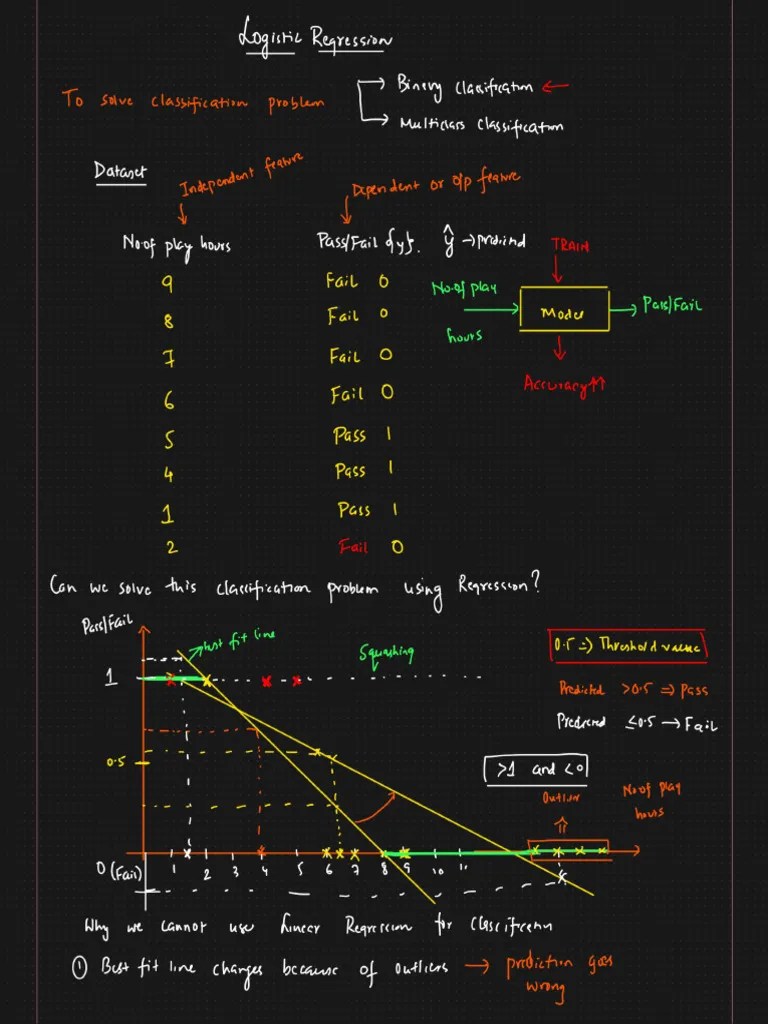 Logistic Regression
To solve classification problem
Binary Classification
Multiclass Classification
Dataset
Independent feature
Dependent or o/p feature
No. of play hours
Pass/Fail {y}.
ŷ → predicted
TRAIN
9 Fail 0
8 Fail 0
7 Fail 0
6 Fail 0
5 Pass 1
4 Pass 1
1 Pass 1
2 Fail 0
No. of play
hours
Model
Pass/Fail
Accuracy ↑↑
Can we solve this classification problem using Regression?
Pass/Fail
best fit line
Squashing
0.5 ⇒ Threshold value
1
Predicted >0.5 ⇒ Pass
Predicted ≤0.5 → Fail
0.5
>1 and <0
Outlier
No. of play
hours
0 (Fail) 1 2 3 4 5 6 7 8 9 10 11
Why we cannot use Linear Regression for Classification
① Best fit line changes because of outliers → prediction goes
wrong